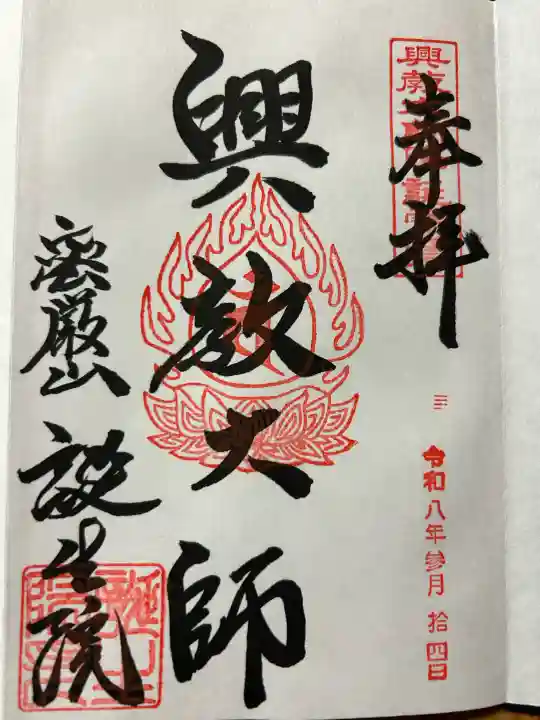 奉拝
令和八年参月拾四日
興教大師
密厳山
誕生院